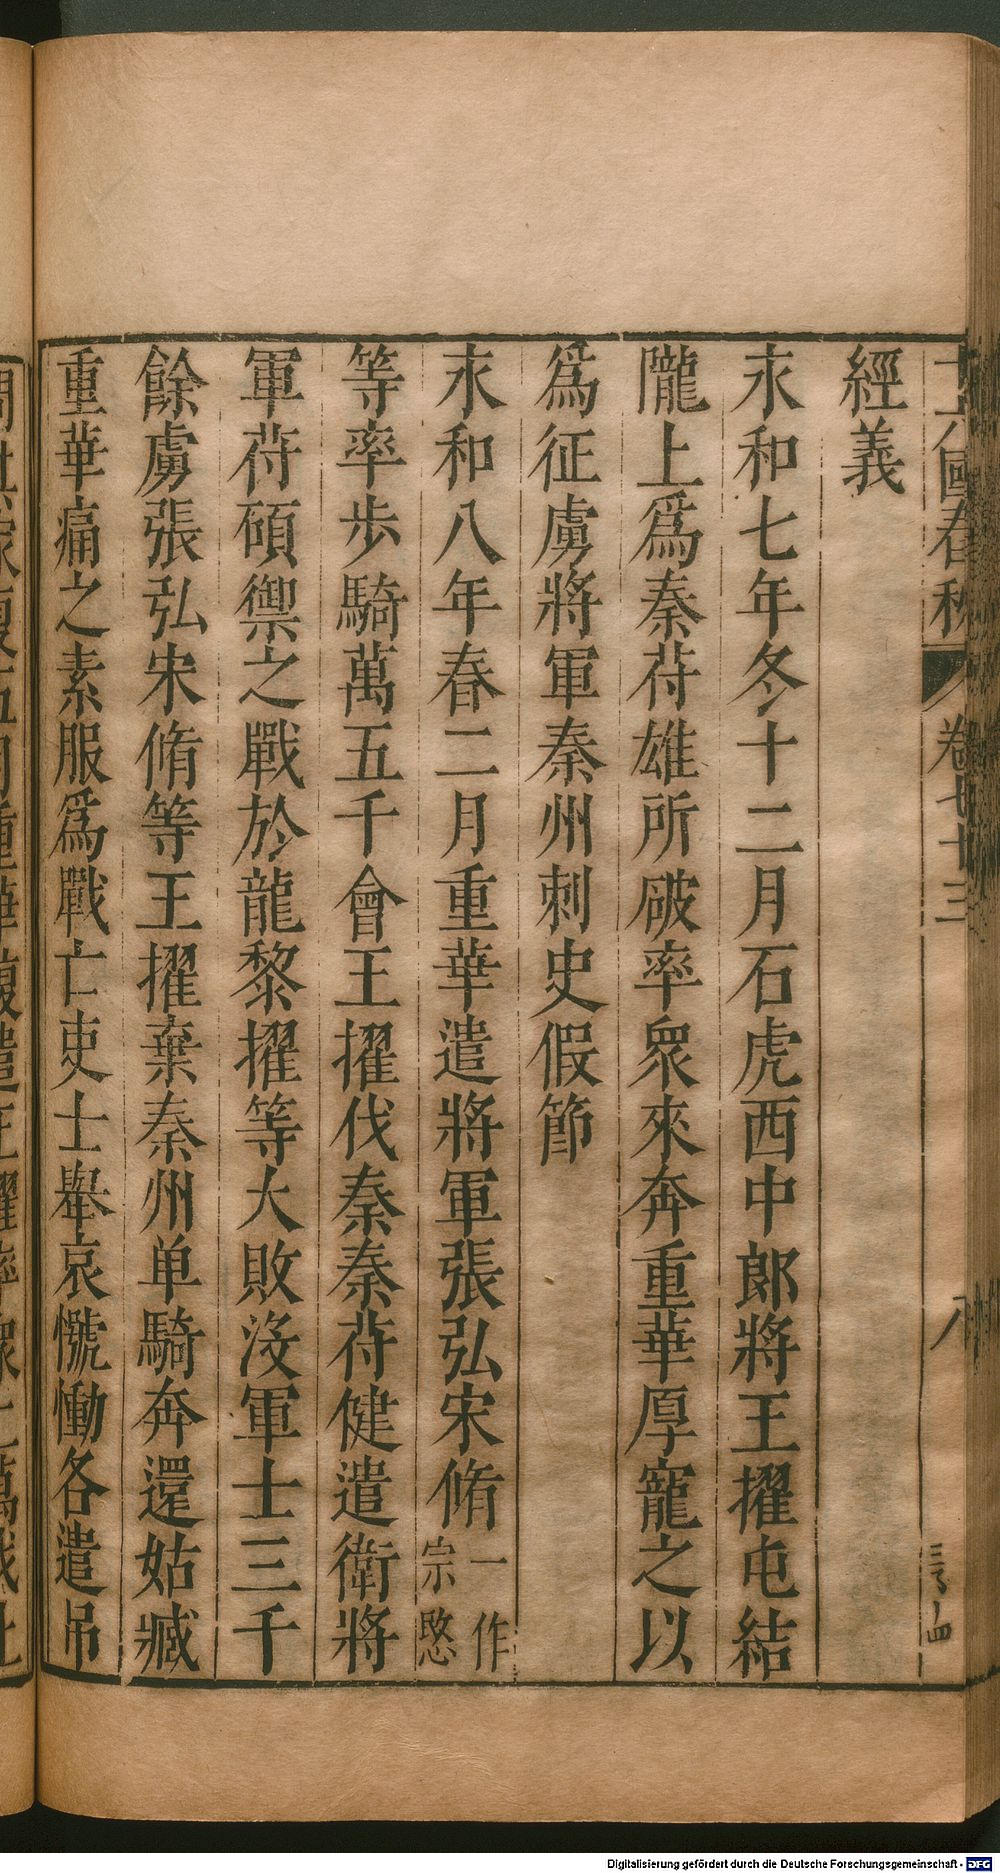 十六國春秋 卷七十三 八
經義
永和七年冬十二月石虎西中郎將王擢屯結
隴上爲秦苻雄所破率眾來奔重華厚寵之以
爲征虜將軍秦州刺史假節
永和八年春二月重華遣將軍張弘宋脩一作宗愍
等率步騎萬五千會王擢伐秦秦苻健遣衛將
軍苻碩禦之戰於龍黎擢等大敗沒軍士三千
餘虜張弘宋脩等王擢棄秦州单騎奔還姑臧
重華痛之素服爲戰亡吏士舉哀慟各遣吊
Digitalisierung gefördert durch die Deutsche Forschungsgemeinschaft - DFG